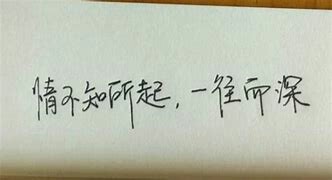 情不知所起，一往而深